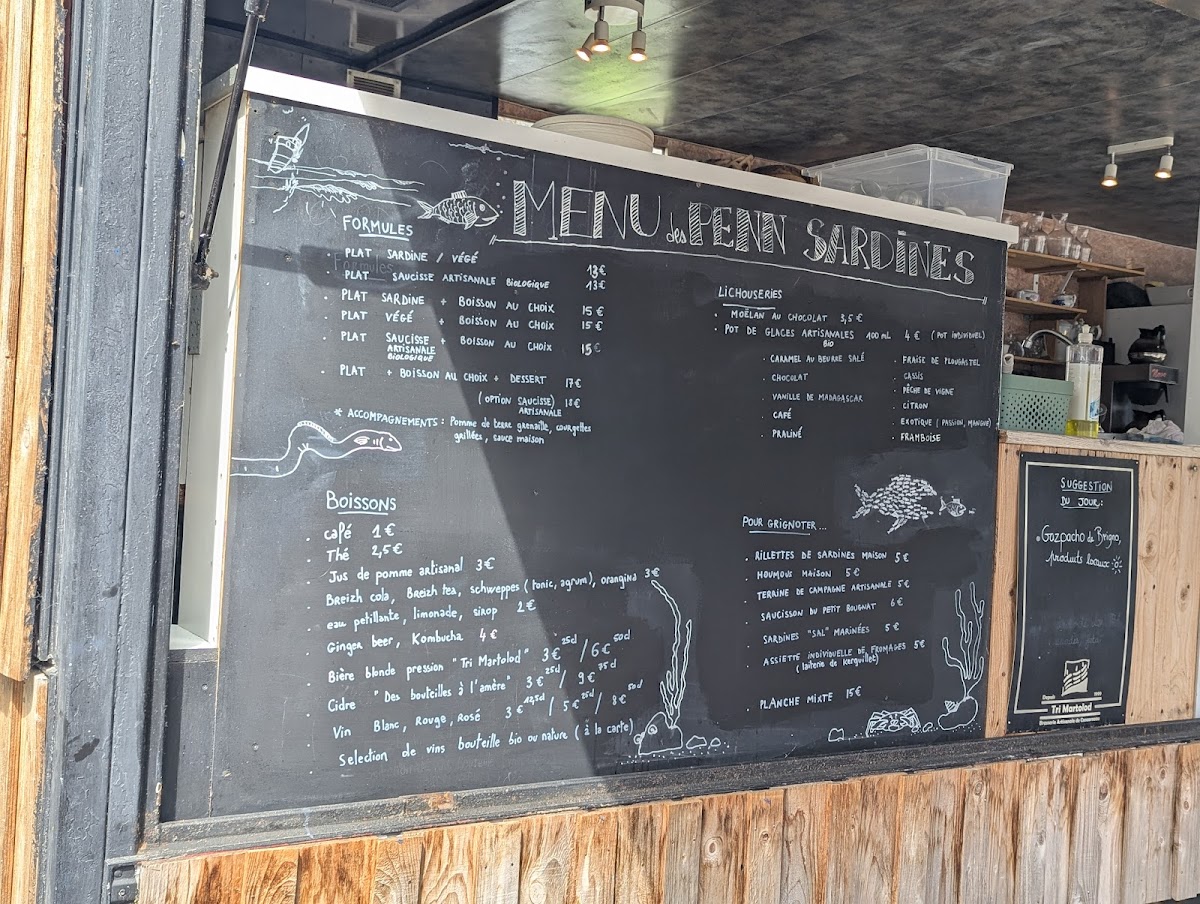 MENU des PENN SARDINES
FORMULES
Formules
PLAT SARDINE / VÉGÉ 13€
PLAT SAUCISSE ARTISANALE BIOLOGIQUE 13€
. PLAT SARDINE + BOISSON AU CHOIX 15€
. PLAT VÉGÉ + BOISSON AU CHOIX 15€
. PLAT SAUCISSE + BOISSON AU CHOIX 15€
ARTISANALE
BIOLOGIQUE
. PLAT + BOISSON AU CHOIX + DESSERT 17€
(OPTION SAUCISSE) 18€
ARTISANALE
* ACCOMPAGNEMENTS : Pomme de terre grenaille, courgettes
grillées, sauce maison
BOISSONS
. café 1€
. Thé 2,5€
. Jus de pomme artisanal 3€
. Breizh cola, Breizh tea, schweppes (tonic, agrum), orangina 3€
. eau petillante, limonade, sirop 2€
. Ginger beer, Kombucha 4€
. Bière blonde pression "Tri Martolod" 3€ 25cl / 6€ 50cl
. Cidre "Des bouteilles à l'amère" 3€ 25cl / 9€ 75cl
. Vin Blanc, Rouge, Rosé 3€ 12,5cl / 5€ 25cl / 8€ 50cl
. Selection de vins bouteille bio ou nature (à la carte)
LICHOUSERIES
. MOËLAN AU CHOCOLAT 3,5€
. POT DE GLACES ARTISANALES 100 mL 4€ (POT INDIVIDUEL)
BIO
. CARAMEL AU BEURRE SALÉ
. CHOCOLAT
. VANILLE DE MADAGASCAR
. CAFÉ
. PRALINÉ
. FRAISE DE PLOUGASTEL
. CASSIS
. PÊCHE DE VIGNE
. CITRON
. EXOTIQUE (PASSION, MANGUE)
. FRAMBOISE
POUR GRIGNOTER ...
. RILLETTES DE SARDINES MAISON 5€
. HOUMOUS MAISON 5€
. TERRINE DE CAMPAGNE ARTISANALE 5€
. SAUCISSON DU PETIT BOUGNAT 6€
. SARDINES "SAL" MARINÉES 5€
. ASSIETTE INDIVIDUELLE DE FROMAGES 5€
(laiterie de kerguillet)
. PLANCHE MIXTE 15€
SUGGESTION
DU JOUR :
. Gazpacho de
produits locaux
Depuis
Tri Martolod